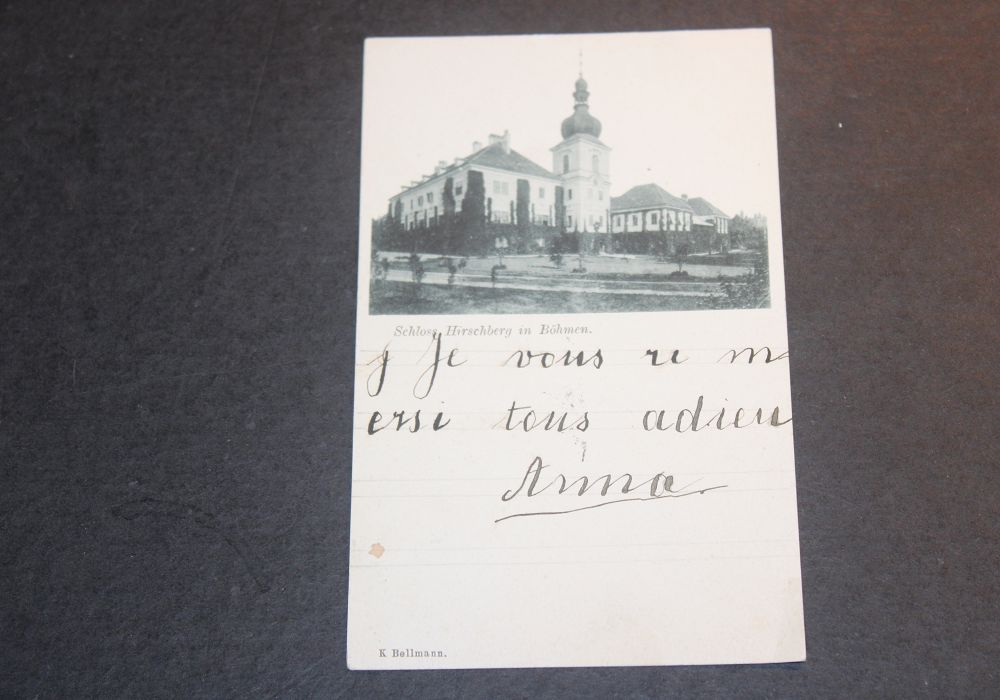 Schloss Hirschberg in Böhmen.
J Je vous re m
ersi tous adieu
Anna
K Bellmann.